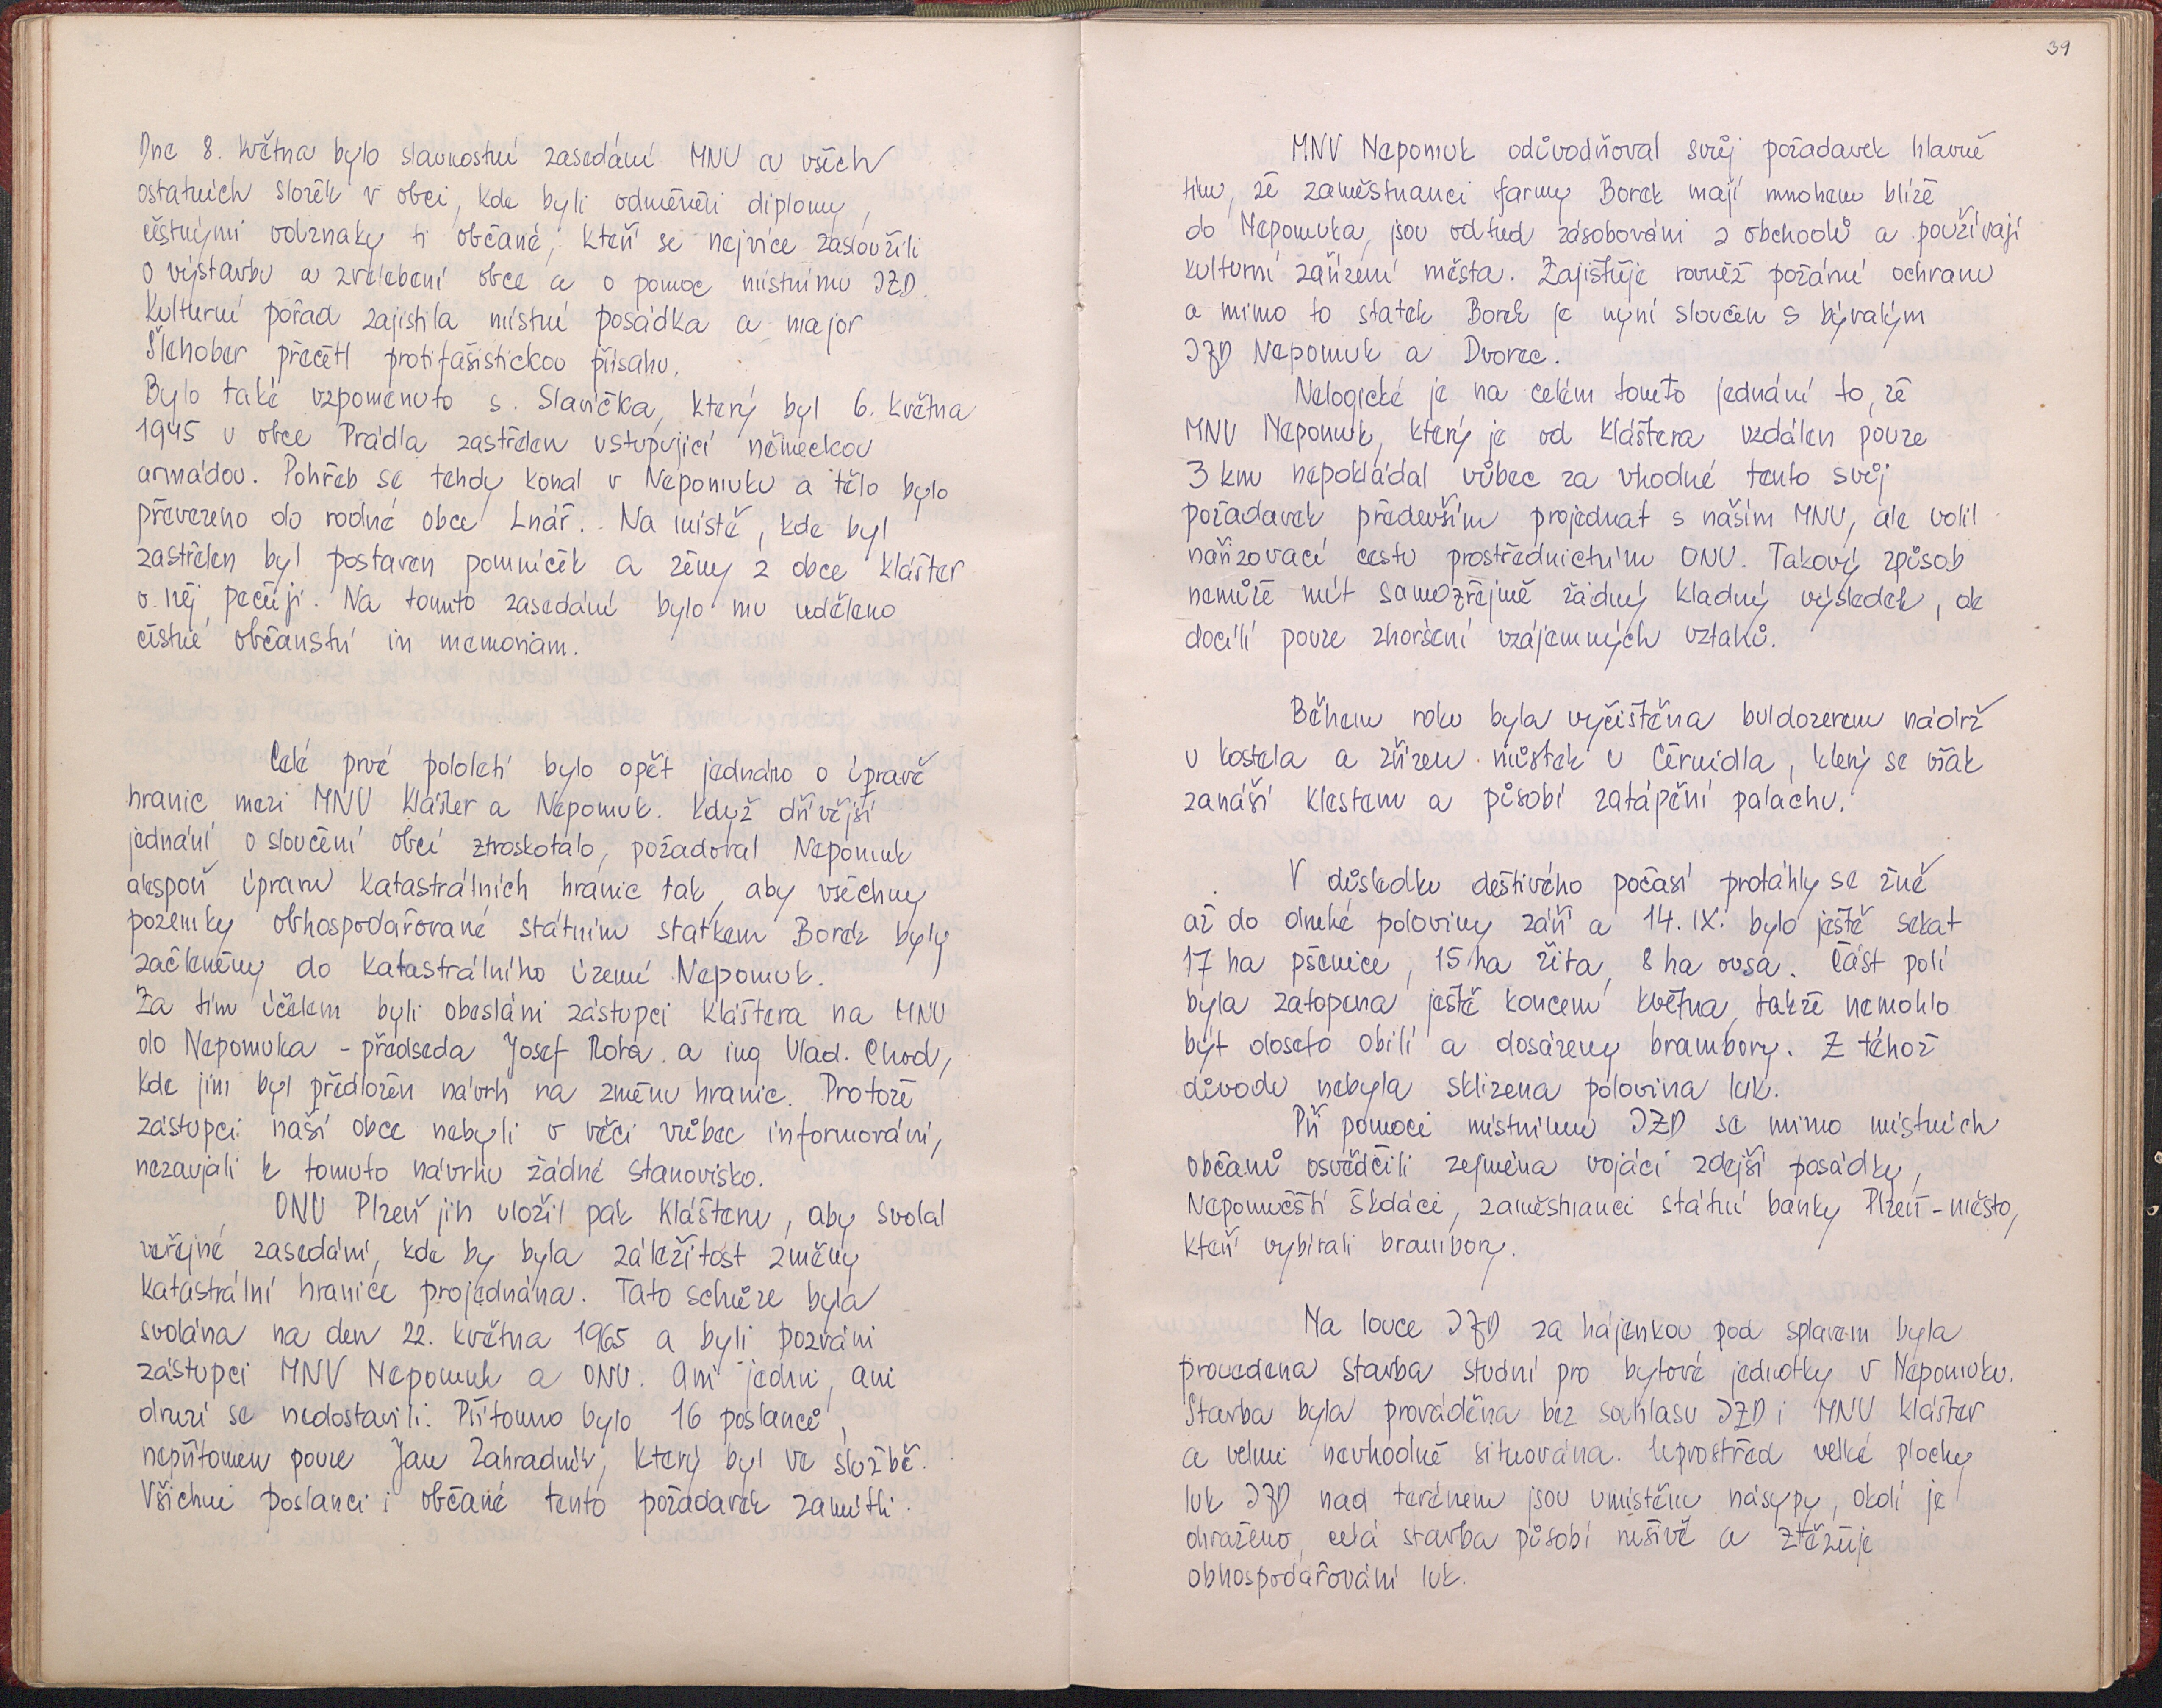 Dne 8. května bylo slavnostní zasedání MNV a všech
ostatních složek v obci, kde byli odměněni diplomy,
čestnými odznaky ti občané, kteří se nejvíce zasloužili
o výstavbu a zvelebení obce a o pomoc místnímu JZD.
Kulturní pořad zajistila místní posádka a major
Šlehober přečetl protifašistickou přísahu.
Bylo také vzpomenuto s. Slavíčka, který byl 6. května
1945 u obce Prádla zastřelen ustupující německou
armádou. Pohřeb se tehdy konal v Nepomuku a tělo bylo
převezeno do rodné obce Lnář. Na místě, kde byl
zastřelen byl postaven pomníček a ženy z obce Klášter
o něj pečují. Na tomto zasedání bylo mu uděleno
čestné občanství in memoriam.
Celé prvé pololetí bylo opět jednáno o úpravě
hranic mezi MNV Klášter a Nepomuk. Když dřívější
jednání o sloučení obcí ztroskotalo, požadoval Nepomuk
alespoň úpravu katastrálních hranic tak, aby všechny
pozemky obhospodařované státním statkem Borek byly
začleněny do katastrálního území Nepomuk.
Za tím účelem byli obesláni zástupci Kláštera na MNV
do Nepomuka - předseda Josef Rota a ing Vlad. Chod,
kde jim byl předložen návrh na změnu hranic. Protože
zástupci naší obce nebyli o věci vůbec informováni,
nezaujali k tomuto návrhu žádné stanovisko.
ONV Plzeň jih uložil pak Klášteru, aby svolal
veřejné zasedání, kde by byla záležitost změny
katastrální hranice projednána. Tato schůze byla
svolána na den 22. května 1965 a byli pozváni
zástupci MNV Nepomuk a ONV. Ani jedni, ani
druzí se nedostavili. Přítomno bylo 16 poslanců,
nepřítomen pouze Jan Zahradník, který byl ve službě.
Všichni poslanci i občané tento požadavek zamítli.
39
MNV Nepomuk odůvodňoval svůj požadavek hlavně
tím, že zaměstnanci farmy Borek mají mnohem blíže
do Nepomuka, jsou odtud zásobováni z obchodů a používají
kulturní zařízení města. Zajištuje rovněž požární ochranu
a mimo to statek Borek je nyní sloučen s bývalým
JZD Nepomuk a Dvorec.
Nelogické je na celém tomto jednání to, že
MNV Nepomuk, který je od Kláštera vzdálen pouze
3 km nepokládal vůbec za vhodné tento svůj
požadavek především projednat s naším MNV, ale volil
nařizovací cestu prostřednictvím ONV. Takový způsob
nemůže mít samozřejmě žádný kladný výsledek, ale
docílí pouze zhoršení vzájemných vztahů.
Během roku byla vyčištěna buldozerem nádrž
u kostela a zřízen můstek u Černidla, který se však
zanáší klestem a působí zatápění palachu.
V důsledku deštivého počasí protáhly se žně
až do druhé poloviny září a 14. IX. bylo ještě sekat
17 ha pšenice, 15 ha žita, 8 ha ovsa. Část polí
byla zatopena ještě koncem května, takže nemohlo
být doseto obilí a dosázeny brambory. Z téhož
důvodu nebyla sklizena polovina luk.
Při pomoci místnímu JZD se mimo místních
občanů osvědčili zejména vojáci zdejší posádky,
Nepomučští škdáci, zaměstnanci státní banky Plzeň-město,
kteří vybírali brambory.
Na louce JZD za hájenkou pod splavem byla
provedena stavba studní pro bytové jednotky v Nepomuku.
Stavba byla prováděna bez souhlasu JZD i MNV Klášter
a velmi nevhodně situována. Uprostřed velké plochy
luk JZD nad terénem jsou umístěny násypy, okolí je
ohraženo, celá stavba působí rušivě a ztěžuje
obhospodařování luk.